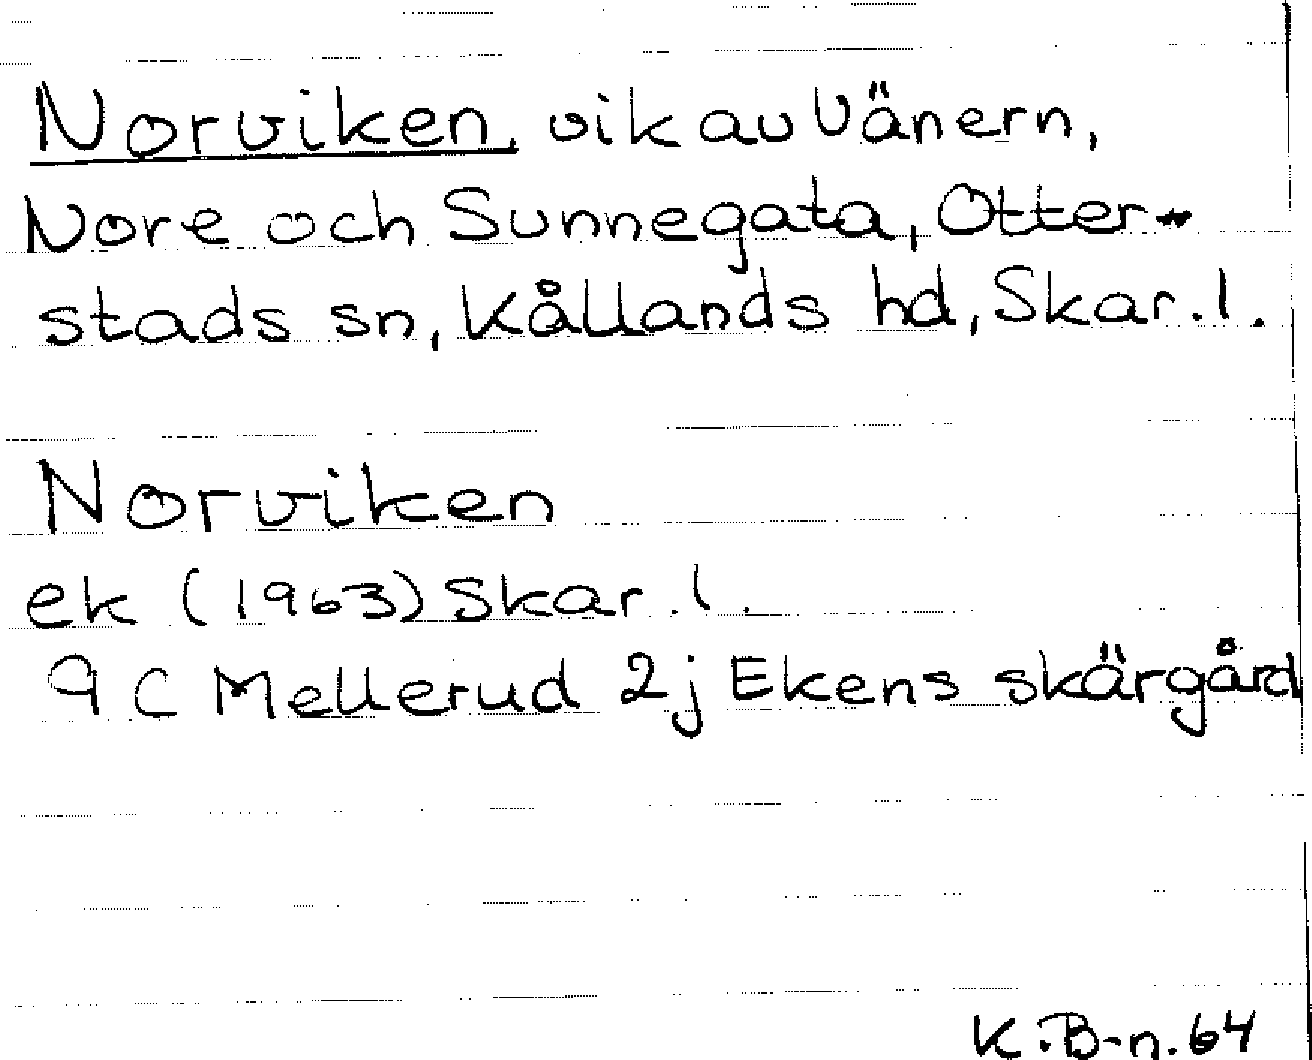 Norviken, vik av Vänern,
Nore och Sunnegata, Otter-
stads sn, Kållands hd, Skar. l.
Norviken
ek (1963) Skar. l.
9 C Mellerud 2j Ekens skärgård
K. B-n. 64